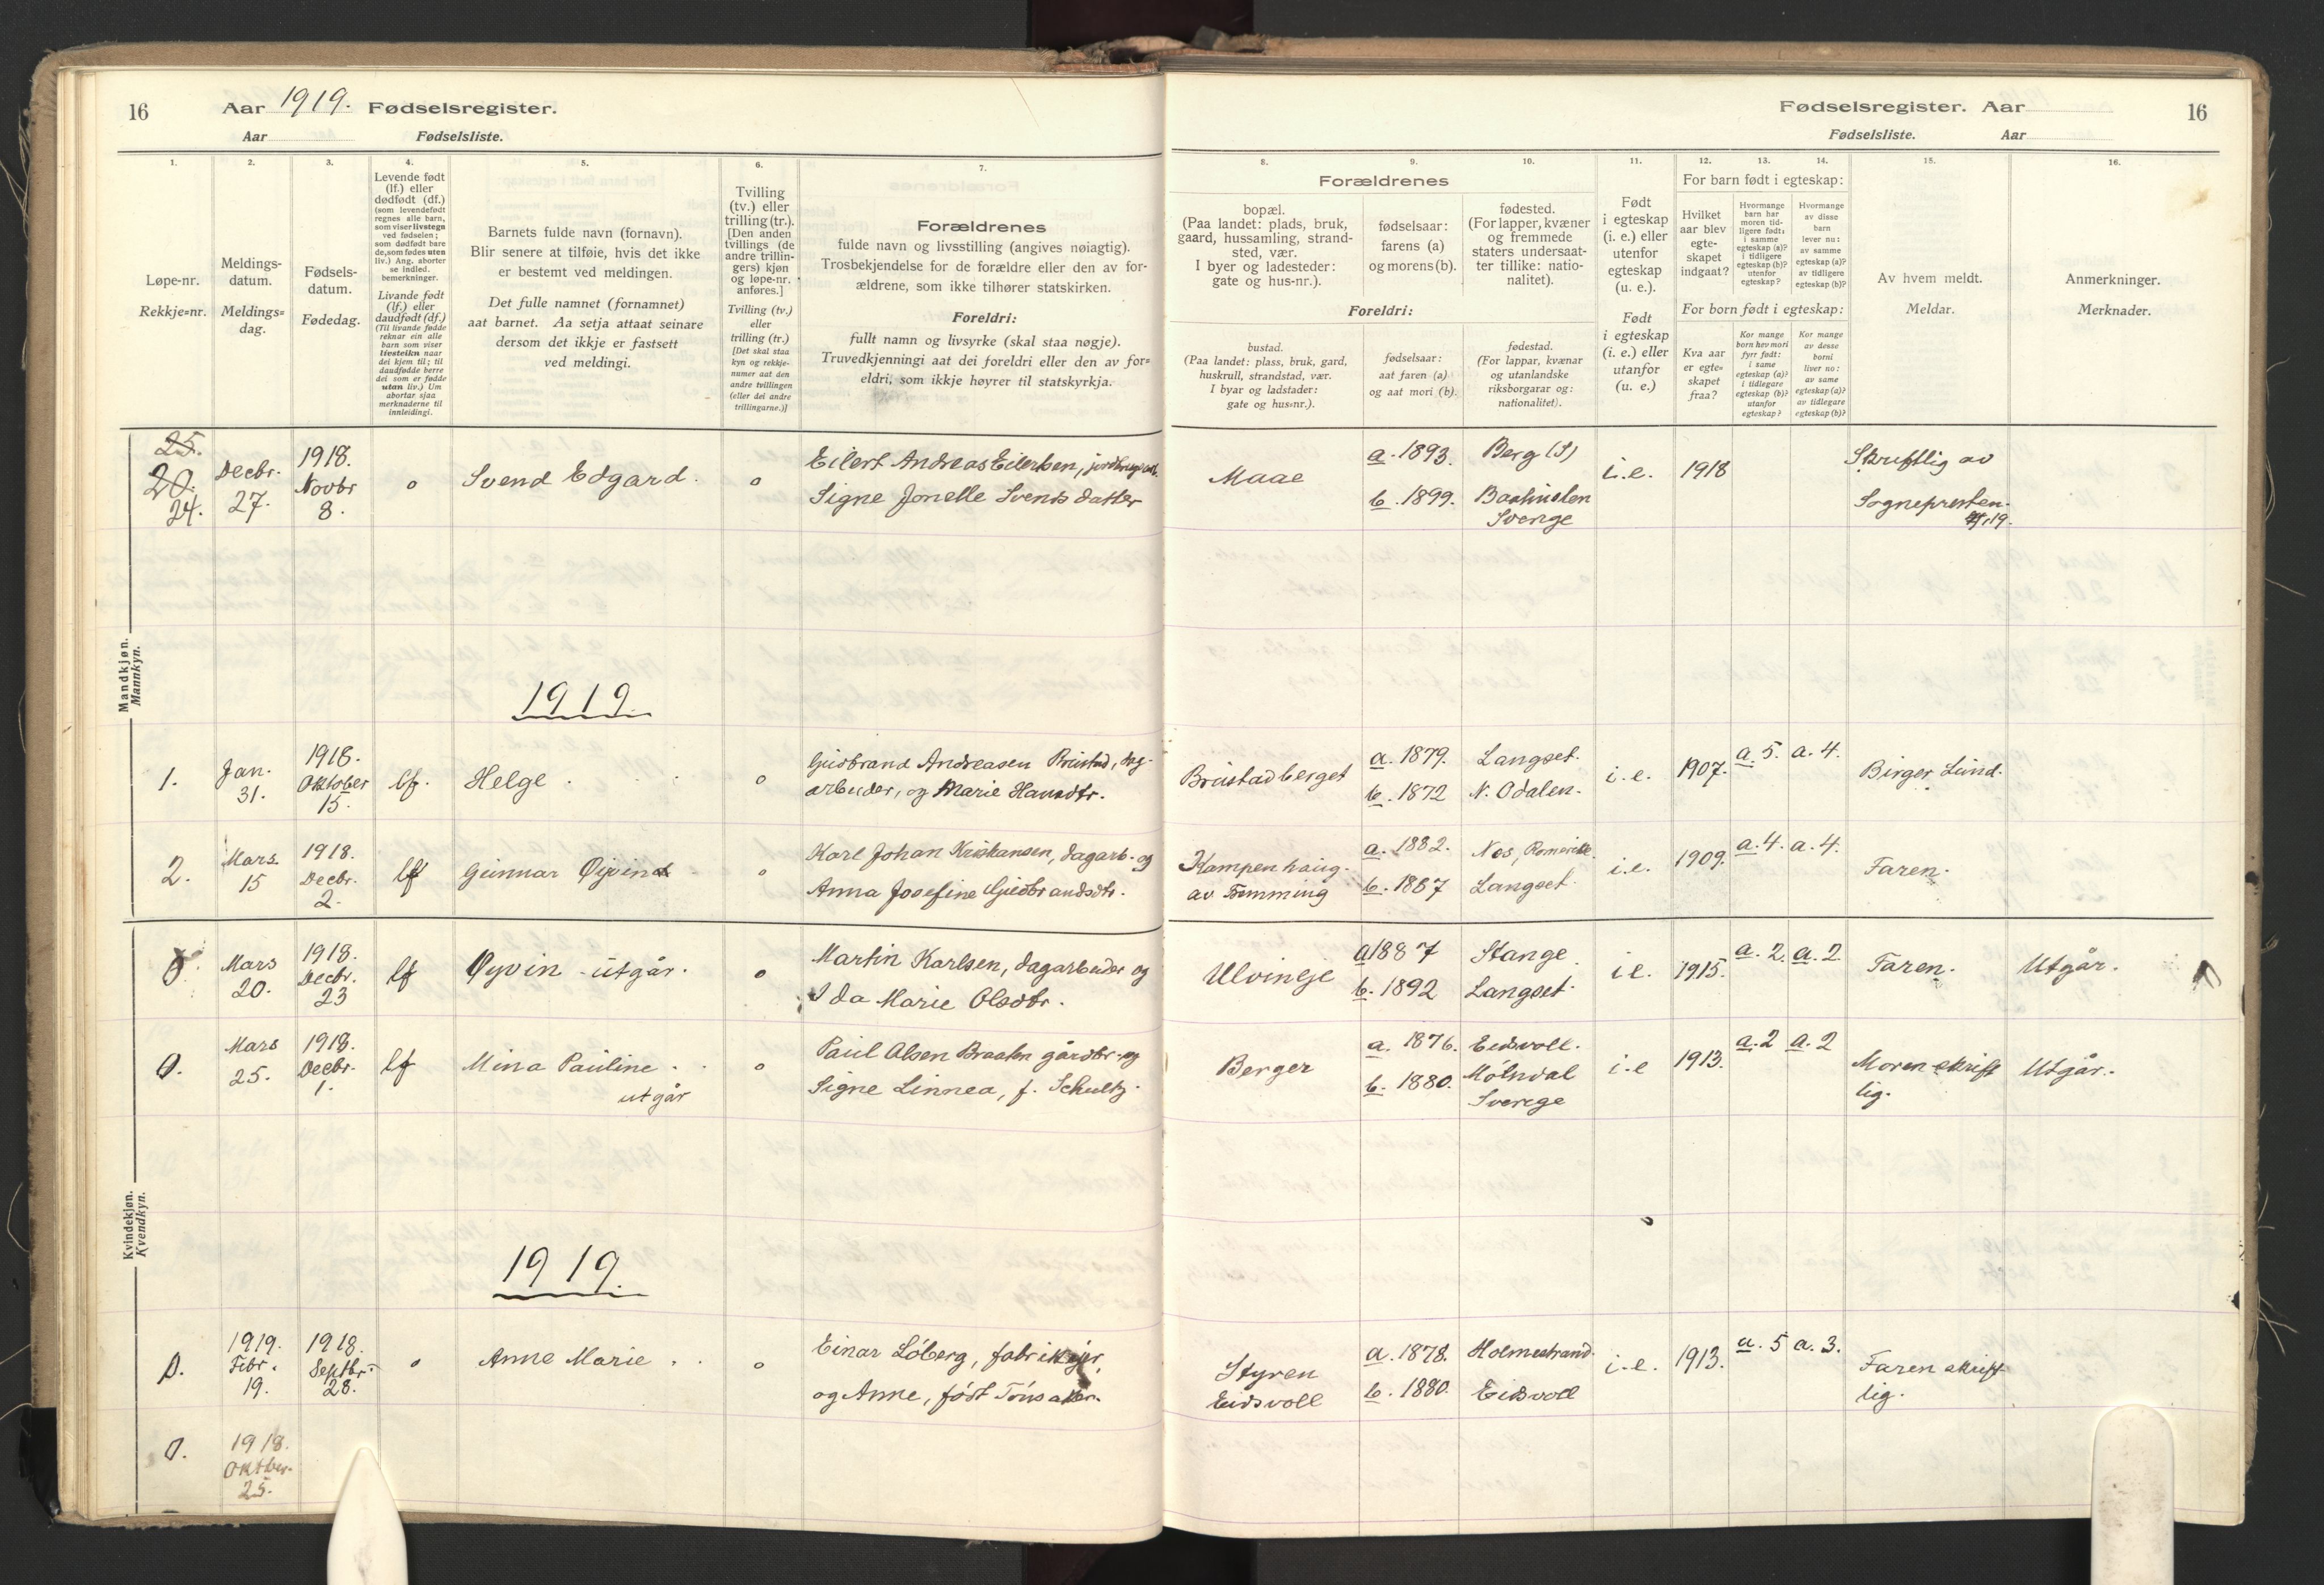 16
Aar 1919. Fødselsregister.
Aar Fødselsliste.
1. 2. 3. 4. 5. 6. 7.
Løpe-nr.
Rekkje=nr.
Meldings-
datum.
Meldings=
dag.
Fødsels-
datum.
Fødedag.
Levende født
(lf.) eller
dødfødt (df.)
(som levendefødt
regnes alle barn,
som viser livstegn
ved fødselen;
som dødfødt bare
de, som fødes uten
liv.) Ang. aborter
se indled.
bemerkninger.
Livande født
(lf.) eller
daudfødt (df.)
(Til livande fødde
reknar ein alle
barn som viser
livsteikn naar
dei kjem til; til
daudfødde berre
dei som er fødde
utan liv.) Um
abortar sjaa
merknaderne til
innleidingi.
Barnets fulde navn (fornavn).
Blir senere at tilføie, hvis det ikke
er bestemt ved meldingen.
Det fulle namnet (fornamnet)
aat barnet. Aa setja attaat seinare
dersom det ikkje er fastsett
ved meldingi.
Tvilling
(tv.) eller
trilling (tr.).
[Den anden
tvillings (de
andre trillin-
gers) kjøn
og løpe-nr.
anføres.]
Tvilling (tv.)
eller
trilling (tr.)
[Det skal staa
kyn og rekkje-
numer aat den
andre tvillingen
(eller dei andre
trillingarne.)]
Forældrenes
fulde navn og livsstilling (angives nøiagtig).
Trosbekjendelse for de forældre eller den av for-
ældrene, som ikke tilhører statskirken.
Foreldri:
fullt namn og livsyrke (skal staa nøgje).
Truvedkjenningi aat dei foreldri eller den av for=
eldri, som ikkje høyrer til statskyrkja.
Mandkjøn.
Mannkyn.
25.
20.
24.
Decbr.
27.
1918.
Novbr
8.
o
Svend Edgard.
o
Eilert Andreas Eilertsen,
Signe Jonelle Svends datter
1919.
1.
Jan.
31.
1918.
Oktober
15.
lf.
Helge.
o
Gudbrand Andreasen Brustad, dag-
arbeider, og Marie Hansdtr.
2.
Mars.
15
1918.
Decbr.
2.
lf
Gunnar Øyvind
o
Karl Johan Kristiansen, dagarb. og
Anna Josefine Gudbrandsdtr.
Kvindekjøn.
Kvendkyn.
0.
Mars
20.
1918.
Decbr.
23
lf
Øyvin - utgår.
o
Martin Karlsen, dagarbeider og
Ida Marie Olsdtr.
0.
Mars
25.
1918.
Decbr.
1.
lf
Mina Pauline.
utgår
o
Paul Olsen Braaten gårdbr. og
Signe Linnea, f. Schultz.
1919.
0.
1919.
Febr.
19.
1918.
Septbr.
28.
o
Anne Marie.
o
Einar Löberg, fabrikejer,
og Anne, født Tönsaker.
0.
1918.
Oktber.
25.
Fødselsregister. Aar
16
Fødselsliste. Aar
8. 9. 10. 11. 12. 13. 14. 15. 16.
Forældrenes
bopæl.
(Paa landet: plads, bruk,
gaard, hussamling, strand-
sted, vær.
I byer og ladesteder:
gate og hus-nr.).
fødselsaar:
farens (a)
og morens (b).
fødested.
(For lapper, kvæner
og fremmede
staters undersaat-
ter tillike: natio-
nalitet).
Foreldri:
bustad.
(Paa landet: plass, bruk, gard,
huskrull, strandstad, vær.
I byar og ladstader:
gate og hus=nr.).
fødselsaar:
aat faren (a)
og aat mori (b).
fødestad.
(For lappar, kvænar
og utanlandske
riksborgarar og:
nationalitet).
Født
i egteskap
(i. e.) eller
utenfor
egteskap
(u. e.).
Født
i egteskap
(i. e.) eller
utanfor
(u. e.)
For barn født i egteskap:
Hvilket
aar blev
egte-
skapet
indgaat?
Hvormange
barn har
moren tid-
ligere født:
i samme
egteskap (a)?
i tidligere
egteskap (b)?
utenfor
egteskap?
Hvormange
av disse
barn
lever nu:
av samme
egteskap (a)?
av tidligere
egteskap (b)?
For born født i egteskap:
Kva aar
er egte=
skapet
fraa?
Kor mange
born hev mori
fyrr født:
i same
egteskap (a)?
i tidlegare
egteskap (b)?
utanfor
egteskap?
Kor mange
av desse
borni
liver no:
av same
egteskap (a)?
av tidlegare
egteskap (b)?
Av hvem meldt.
Meldar.
Anmerkninger.
Merknader.
Maae
a. 1893.
b. 1899.
Berg (S)
Baahuslen
Sverige
i. e.
1918
Skriftlig av
Sognepresten.
Brustadberget
a. 1879.
b. 1872
Langset.
N. Odalen.
i. e.
1907.
a. 5.
a. 4.
Birger Lund.
Kampenhaug.
av Temming
a. 1882.
b. 1887
Nes, Romerike.
Langset.
i. e.
1909.
a. 4.
a. 4.
Faren.
Ulvineje
a 1887
b. 1892
Stange.
Langset.
i e.
1915.
a. 2.
a. 2
Faren.
Utgår.
Berger
a. 1876.
b. 1880.
Eidsvoll.
Mölndal
Sverige
i. e
1913.
a. 2
a. 2
Moren skrift
lig.
Utgår.
Styren
Eidsvoll
a. 1878.
b. 1880.
Holmestrand.
Eidsvoll
i. e.
1913.
a. 5
a. 3.
Faren skrift
lig.